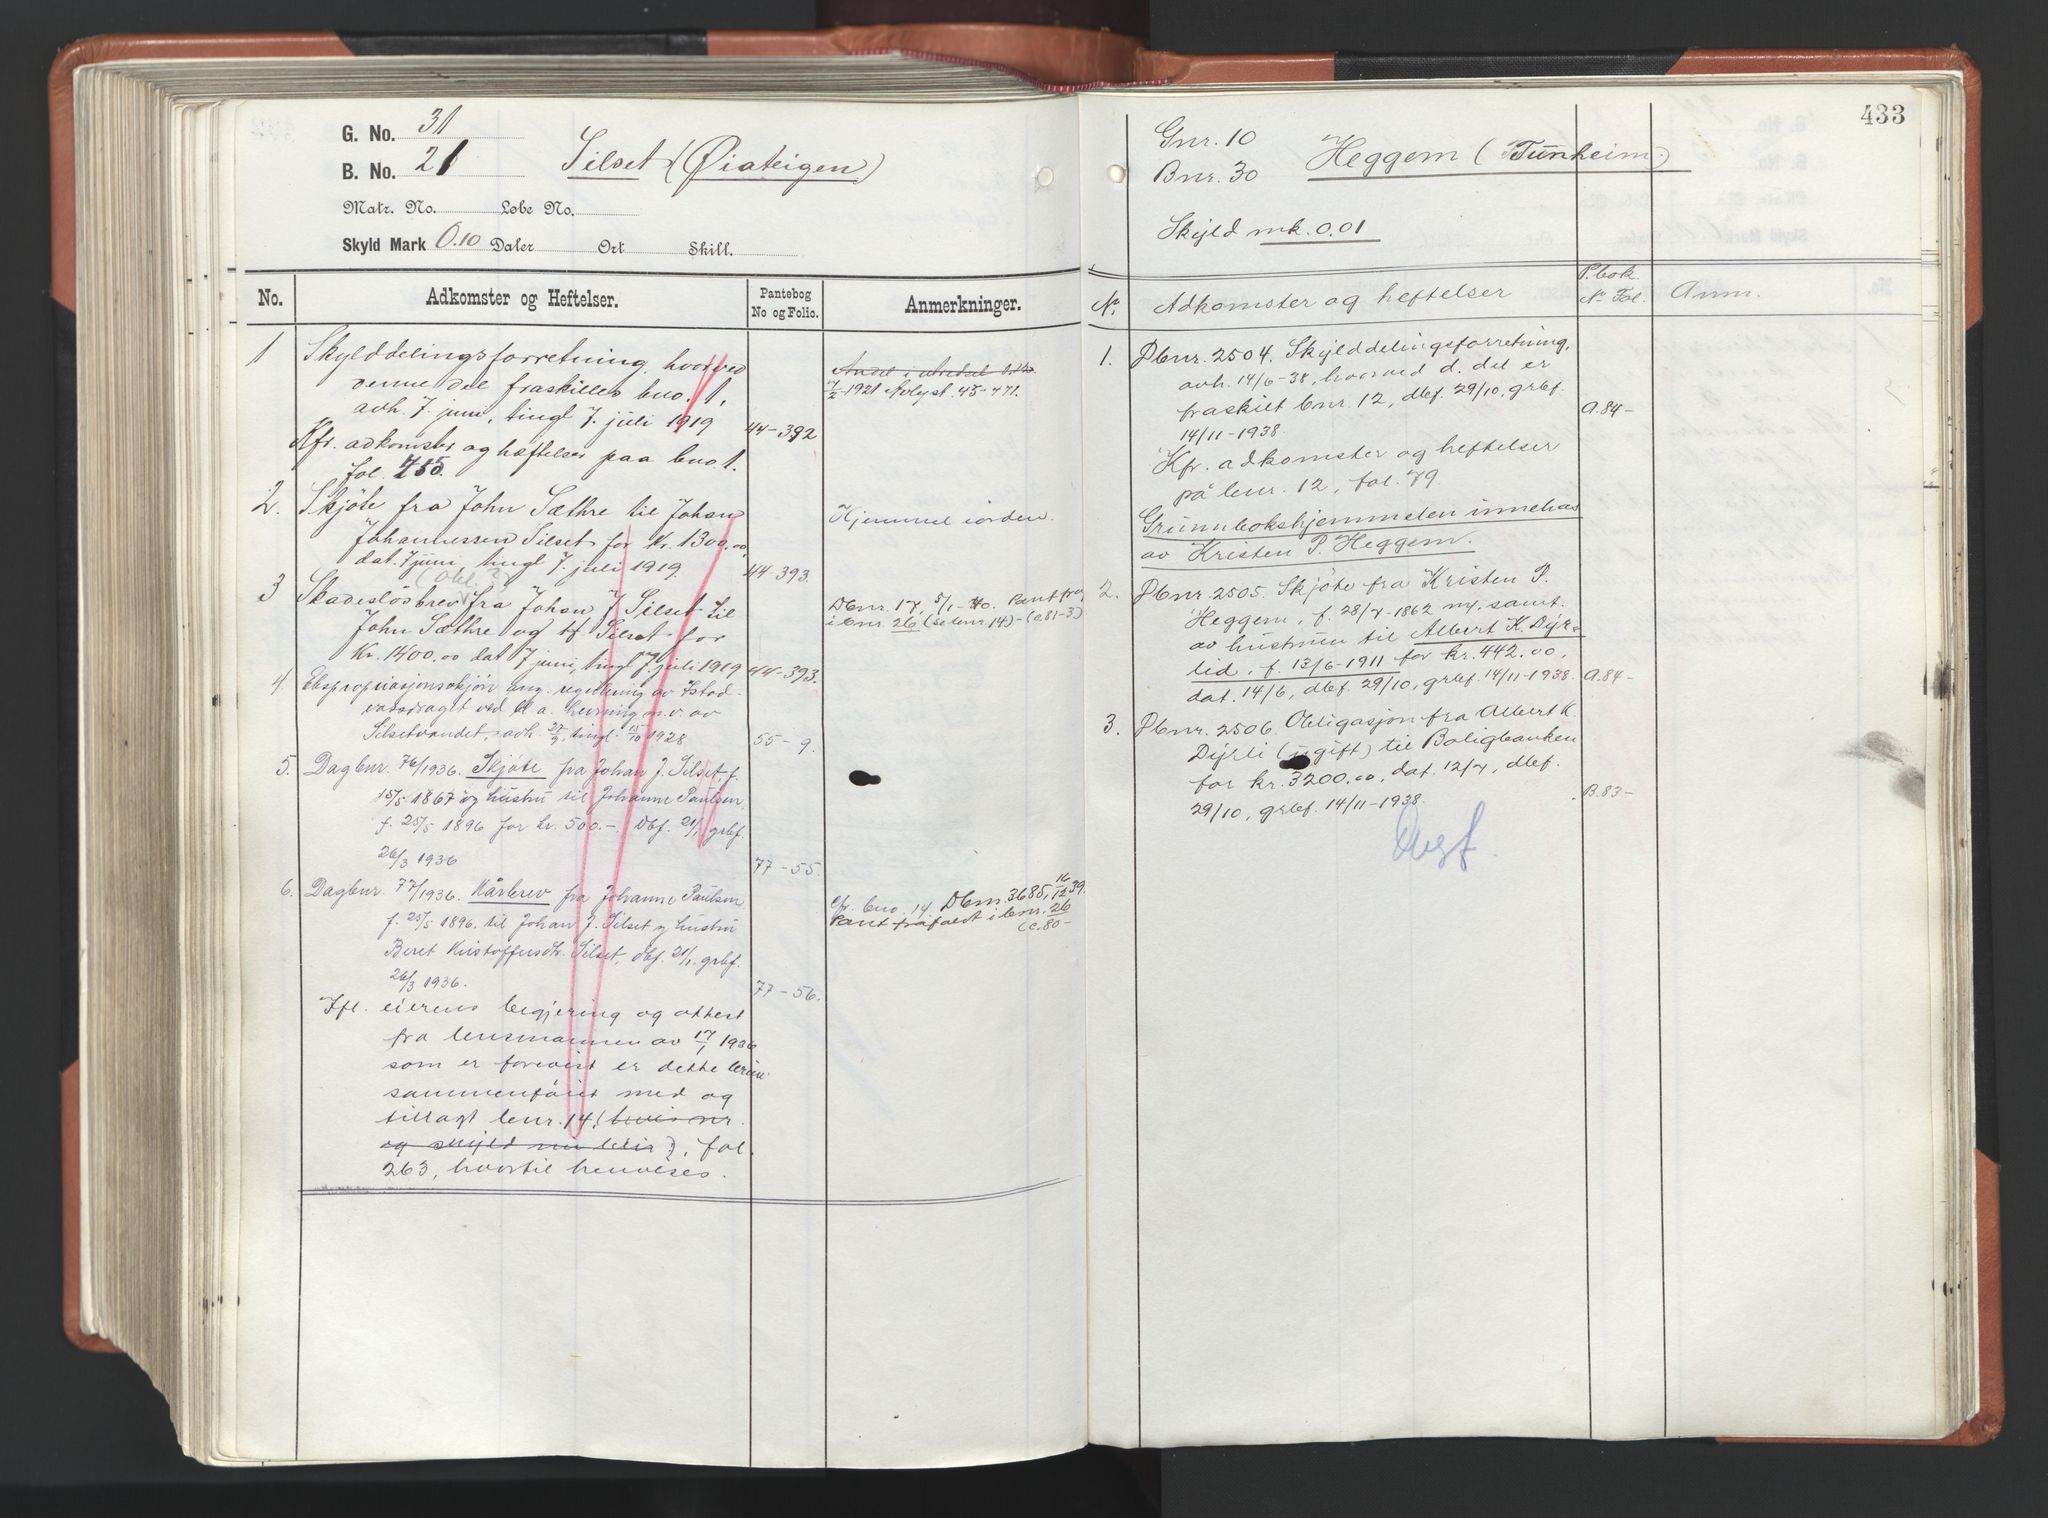 G. No. 31
B. No. 21
Silset (Øiateigen)
Matr. No. Løbe No.
Skyld Mark 0.10 Daler Ort Skill.
No. Adkomster og Heftelser. Pantebog No og Folio. Anmerkninger.
1 Skylddelingsforretning, hvorved
denne del fraskilles bno. 1,
avh. 7. juni, tingl. 7. juli 1919 44-392
Kfr. adkomster og hæftelser paa bno 1.
fol. 455.
Andel i
1921 Avlyst 45-471.
2. Skjøte fra John Sæthre til Johan
Johannessen Silset for Kr. 1300.00,
dat. 7 juni, tingl 7. juli 1919. 44-393.
Hjemmel iorden.
(Obl.?)
3 Skadesløsbrev fra Johan J Silset til
John Sæthre og Silset for
Kr. 1400.00 dat 7 juni, tingl 7. juli 1919 44-393.
Dbnr. 17, 5/1-40. Pant fra
i bnr. 26 (se bnr. 14) - (c. 81-3)
4. Ekspropriasjonsskjøn ang. regulering av Istad-
vasdraget ved bl a. hevning m.v. av
Silsetvandet, avh. 27/9, tingl. 15/10 1928 55-9.
5. Dagbnr. 76/1936. Skjøte fra Johan J. Silset, f.
15/5 1867 og hustru til Johanne Paulsen,
f. 25/5 1896 for kr. 500.-. Dbf. 21/1, grbf.
26/3 1936 77-55.
6. Dagbnr. 77/1936. Kårbrev fra Johanne Paulsen
f. 25/5 1896. til Johan J. Silset og hustru
Beret Kristoffersdtr. Silset, dbf. 21/1, grbf.
26/3 1936. 77-56.
cfr. bno. 14 Dbnr. 3685, 16/12 39.
Pant frafaldt i bnr. 26
(c. 80-
Ifl. eierens begjering og attest
fra lensmannen av 17/1 1936
som er forevist er dette bruk
sammenføiet med og
tillagt bnr. 14, (hvis nr
og skyld nu blir), fol.
263, hvortil henvises.
433
Gnr. 10
Bnr. 30
Heggem (Tunheim)
Skyld mk. 0.01
Nr. Adkomster og heftelser P.bok. Nr. Fol. Anm.
1. Dbnr. 2504. Skylddelingsforretning,
avh. 14/6-38, hvorved d. del er
fraskilt bnr. 12, dbf. 29/10, grbf.
14/11-1938. A.84-
Kfr. adkomster og heftelser
på bnr. 12, fol. 79.
Grunnbokshjemmelen innehas
av Kristen P. Heggem.
2. Dbnr. 2505. Skjøte fra Kristen P.
Heggem, f. 28/7-1862 m. samt.
av hustruen til Albert K. Dyr-
lid, f. 13/6-1911 for kr. 442.00,
dat. 14/6, dbf. 29/10, grbf. 14/11-1938. A.84-
3. Dbnr. 2506. Obligasjon fra Albert K.
Dyrli (ugift) til Boligbanken
for kr. 3200.00, dat. 12/7, dbf.
29/10, grbf. 14/11-1938. B.83-